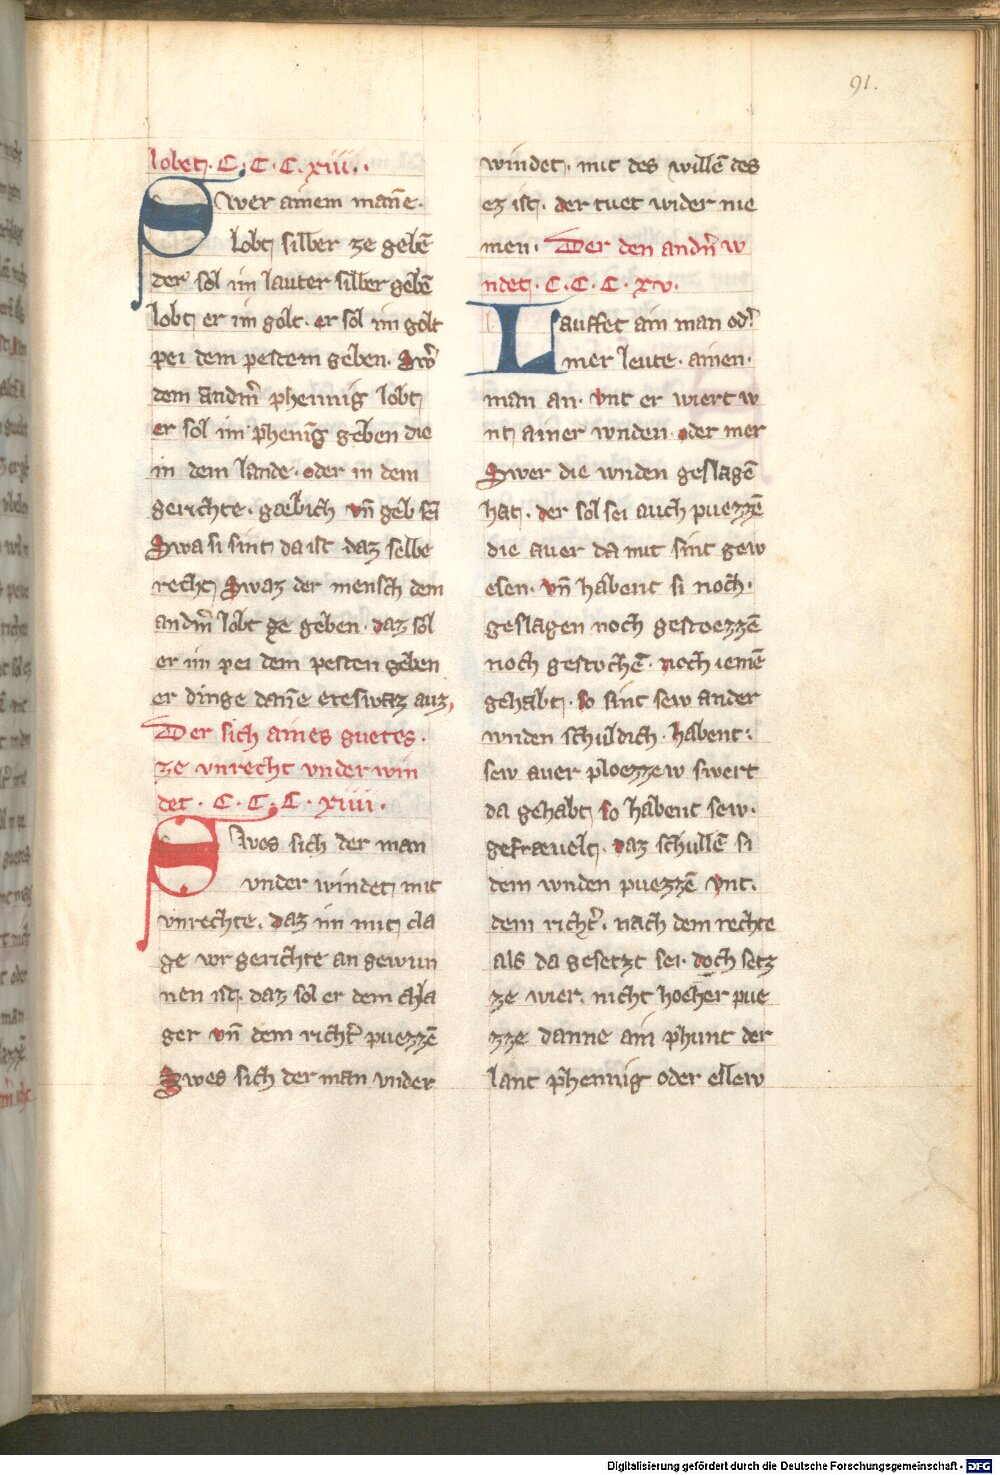 91.
lobet. C. C. C. xiii.
Swer ainem mane.
lobt silber ze gebē
der sol im lauter silber gebē
lobt er im golt. er sol im golt
pei dem pestem geben. Swer
dem andm̄ phennig lobt
er sol im phenīg geben die
in dem lande. oder in dem
gerichte. gaebich vn̄ geb sn̄
Swa si sint da ist daz selbe
recht Swaz der mensch dem
andm̄ lobt ze geben. daz sol
er im pei dem pesten geben
er dinge dan̄e eteswaz auz,
Der sich aines guetes.
ze vnrecht vnder win
det. C. C. C. xiiii.
Swes sich der man
vnder windet mit
vnrechte. daz im mit cla
ge vor gerichte an gewun
nen ist. daz sol er dem chla
ger vn̄ dem richt̄ puezzē
Swes sich der man vnder
windet. mit des willē des
ez ist. der tuet wider nie
men. Der den andn̄ w
ndet. C. C. C. xv.
Lauffet ain man od̄
mer leute. ainen.
man an. vnt er wiert w
nt ainer wnden. oder mer
Swer die wnden geslagē
hat. der sol sei auch puezzē
die auer da mit sint gew
esen. vn̄ habent si noch.
geslagen noch gestoezzē
noch gestochē. noch iemē
gehabt. so sint sew ander
wnden schuldich. habent.
sew auer ploezzew swert
da gehabt so habent sew.
gefraeuelt. daz schullē si
dem wnden puezzē vnt.
dem richt̄. nach dem rechte
als da gesetzt sei. doch setz
ze wier. nicht hoeher pue
zze danne ain phunt der
lant phennig oder ellew
Digitalisierung gefördert durch die Deutsche Forschungsgemeinschaft - DFG